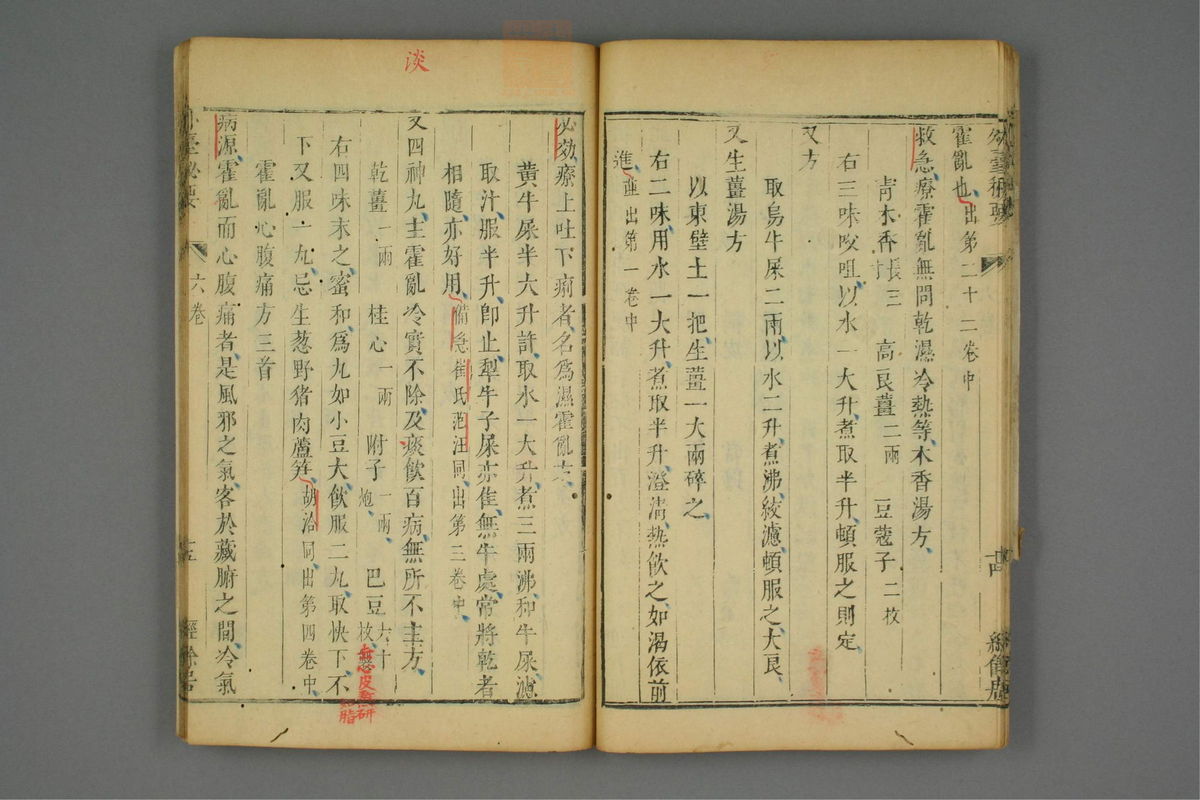 霍亂也出第二十二卷中
救急療霍亂無問乾濕冷熱等木香湯方
青木香長三 高良薑二兩 豆蔻子二枚
右三味㕮咀以水一大升煮取半升頓服之則定
又方
取烏牛屎二兩以水二升煮沸絞濾頓服之大良
又生薑湯方
以東壁土一把生薑一大兩碎之
右二味用水一大升煮取半升澄清熱飲之如渴依前
進並出第一卷中
必効療上吐下痢者名爲濕霍亂方
黄牛屎半大升許取水一大升煮三兩沸和牛屎濾
取汁服半升卽止犁牛子屎亦佳無牛處常將乾者
相隨亦好用備急崔氏范汪同出第三卷中
又四神丸主霍亂冷實不除及痰飲百病無所不主方
乾薑一兩 桂心一兩 附子一兩炮 巴豆六十枚
去心皮熬研如脂
右四味末之蜜和爲丸如小豆大飲服二丸取快下不
下又服一丸忌生葱野猪肉蘆笋胡洽同出第四卷中
霍亂心腹痛方三首
病源霍亂而心腹痛者是風邪之氣客於藏腑之間冷氣
外臺祕要
六卷
十五
經餘居
淡